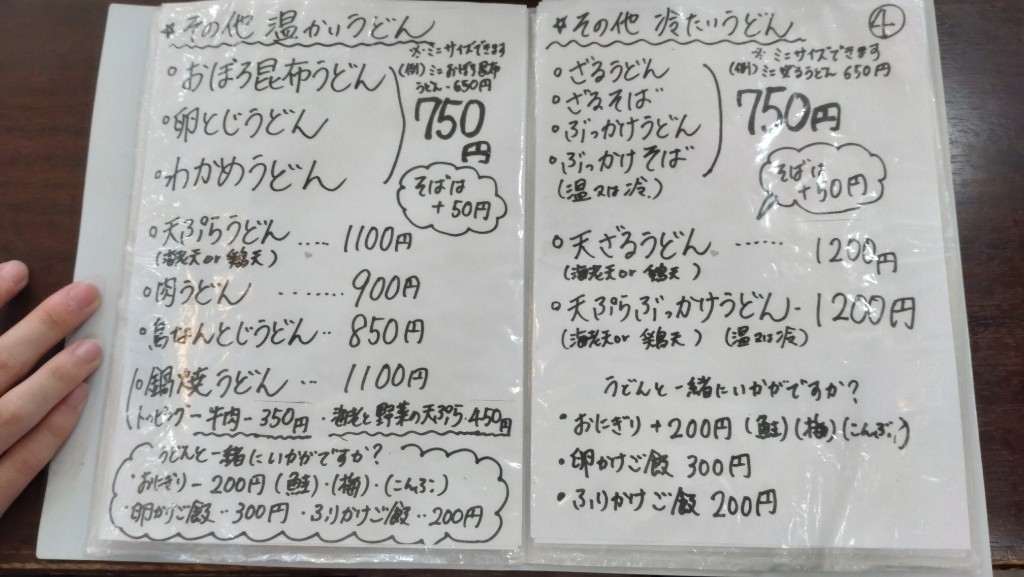 ☆その他 温かいうどん
※ミニサイズできます
(例)ミニおぼろ昆布
うどん-650円
。おぼろ昆布うどん
。卵とじうどん
。わかめうどん
750
円
そばは
+50円
。天ぷらうどん .... 1100円
(海老天or鶏天)
。肉うどん ........ 900円
。鳥なんとじうどん.. 850円
。鍋焼うどん ... 1100円
(トッピングー牛肉-350円 ・海老と野菜の天ぷら・450円
うどんと一緒にいかがですか?
・おにぎりー200円(鮭)・(梅)・(こんぶ)
・卵かけご飯‥300円 ・ふりかけご飯‥200円
☆その他 冷たいうどん
④
※ミニサイズできます
(例)ミニざるうどん 650円
。ざるうどん
。ざるそば
。ぶっかけうどん
。ぶっかけそば
(温又は冷)
750円
そばは
+50円
。天ざるうどん ...... 1200円
(海老天or鶏天)
。天ぷらぶっかけうどん- 1200円
(海老天or鶏天) (温又は冷)
うどんと一緒にいかがですか?
・おにぎり+200円(鮭)(梅)(こんぶ)
・卵かけご飯 300円
・ふりかけご飯 200円